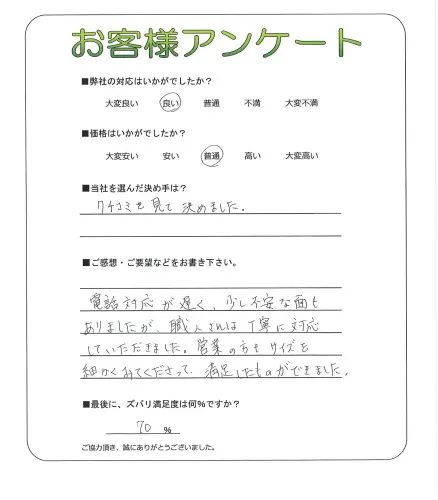 お客様アンケート
■弊社の対応はいかがでしたか？
大変良い 良い 普通 不満 大変不満
■価格はいかがでしたか？
大変安い 安い 普通 高い 大変高い
■当社を選んだ決め手は？
クチコミを見て決めました。
■ご感想・ご要望などをお書き下さい。
電話対応が遅く、少し不安な面も
ありましたが、職人さんは丁寧に対応
していただきました。営業の方もサイズを
細かくみてくださって、満足したものができました。
■最後に、ズバリ満足度は何%ですか？
70 %
ご協力頂き、誠にありがとうございました。